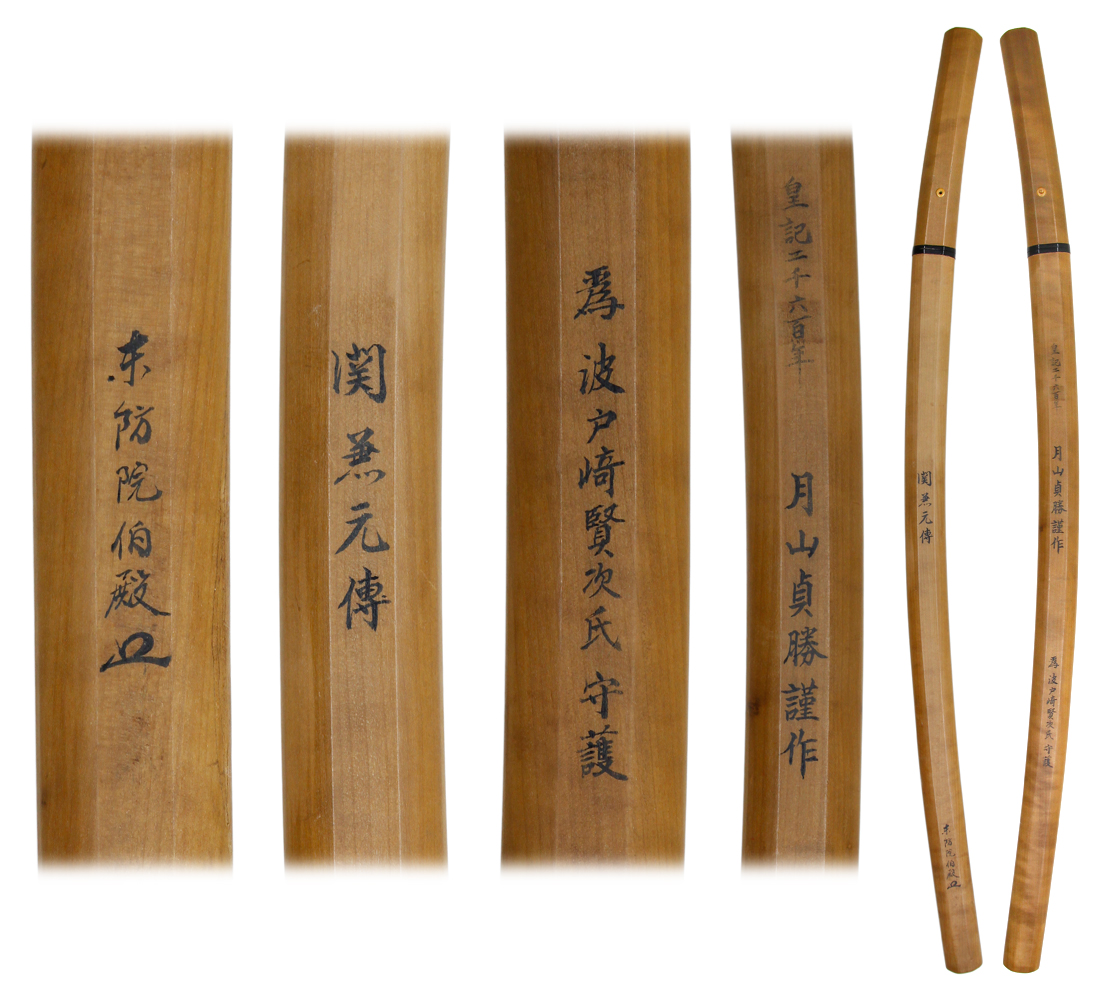 皇記二千六百年 月山貞勝謹作
爲 波戸崎賢次氏 守護
関兼元傳
防院伯殿
皇記二千六百年 月山貞勝謹作 爲 波戸崎賢次氏 守護
関兼元傳 防院伯殿